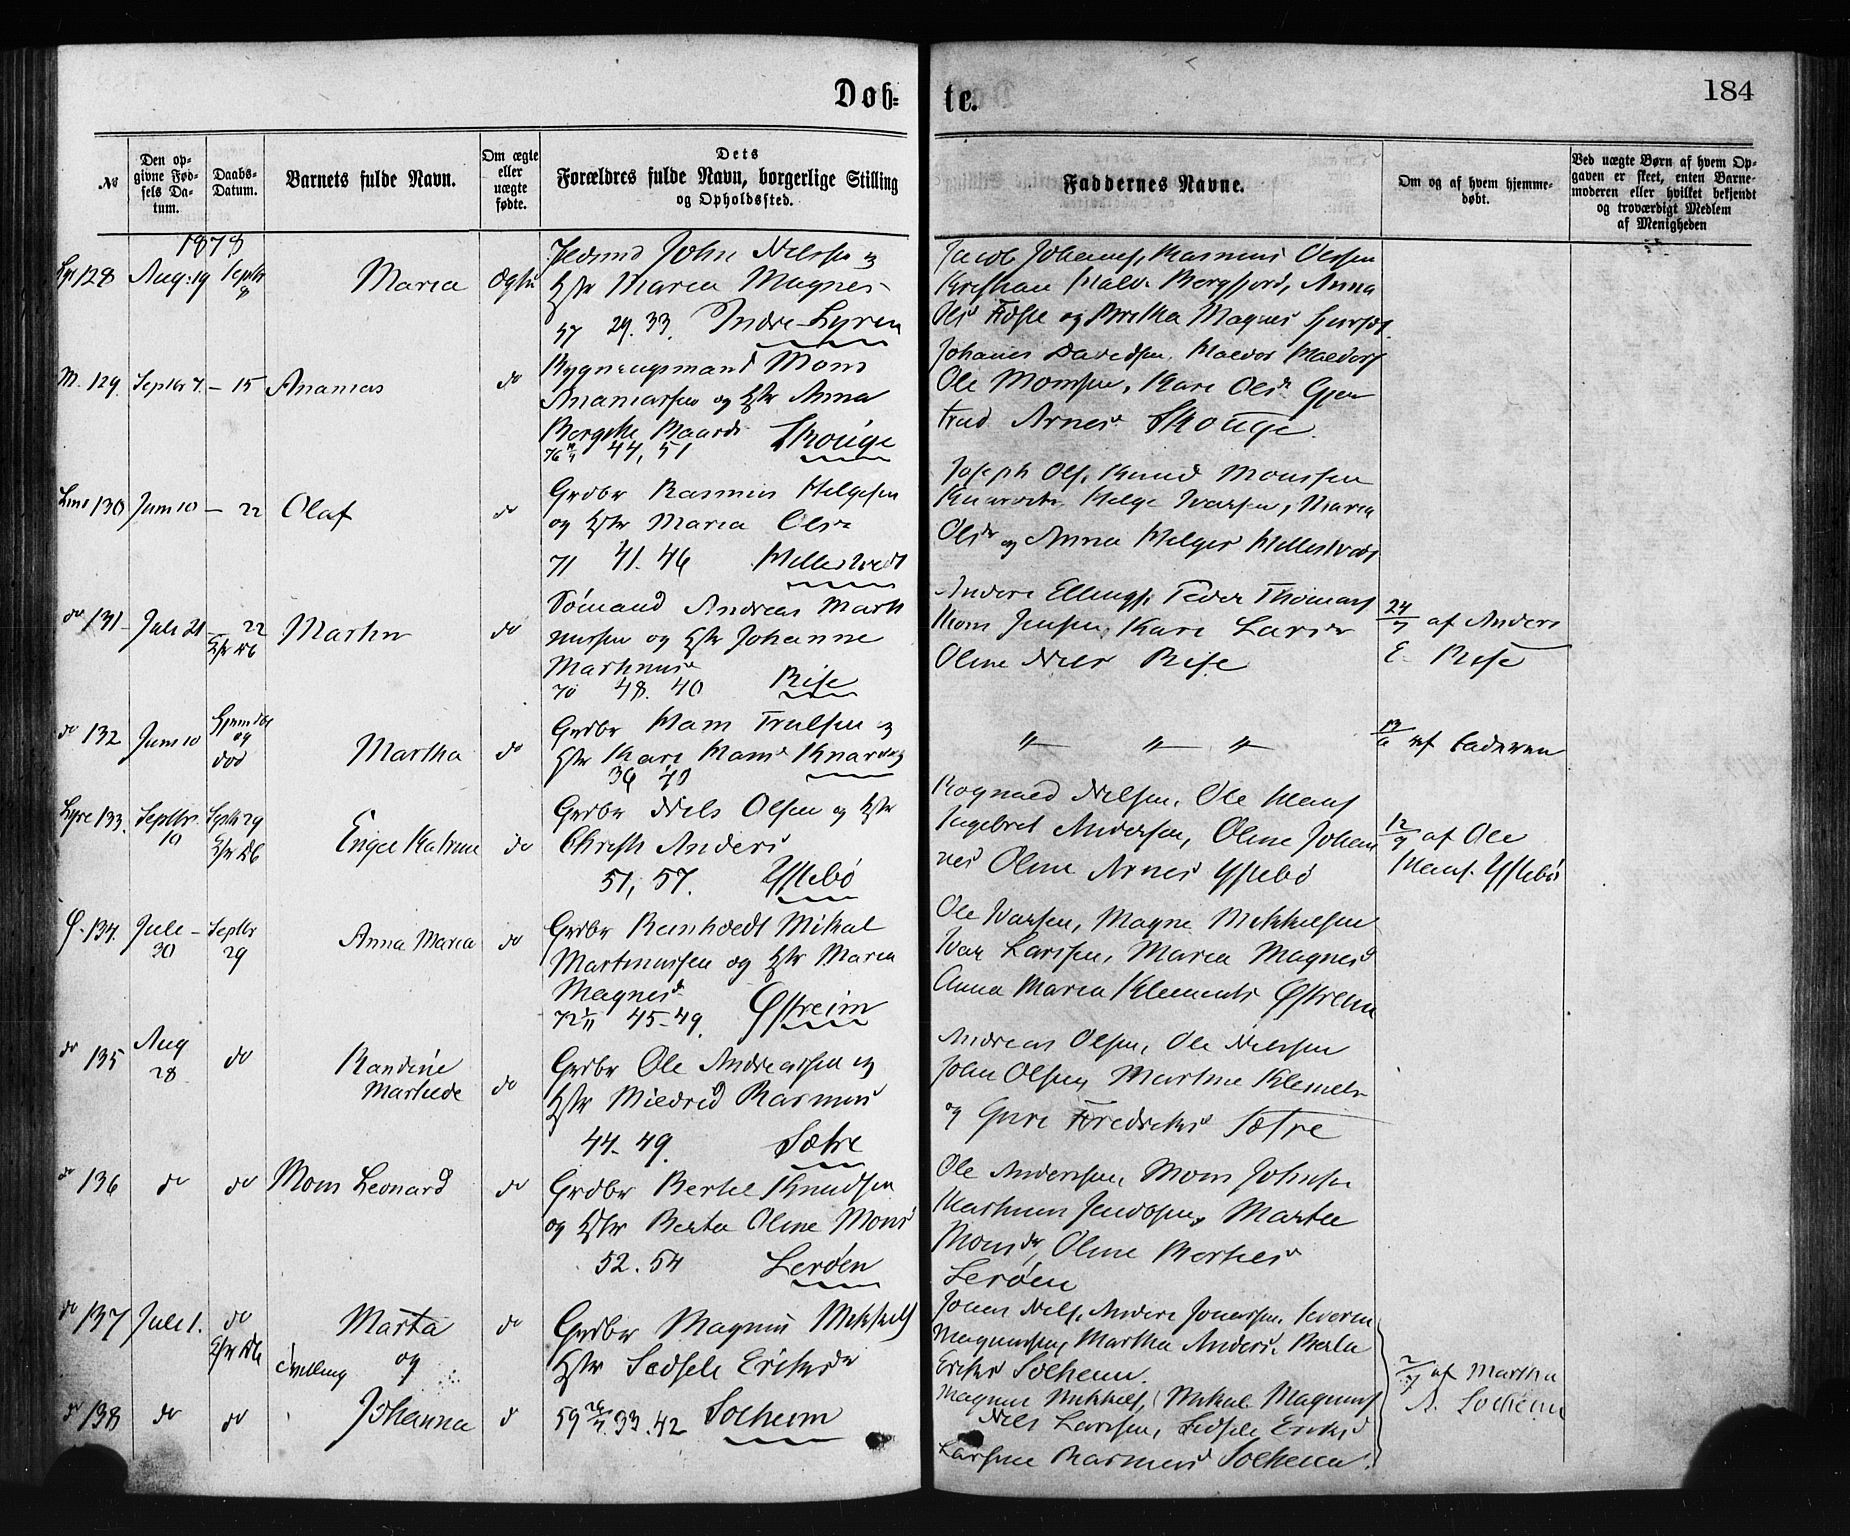 Døb-
te.
184
No
Den op-
givne Fød-
sels Da-
tum.
Daabs-
Datum.
Barnets fulde Navn.
Om ægte
eller
uægte
fødte.
Dets
Forældres fulde Navn, borgerlige Stilling
og Opholdssted.
Faddernes Navne.
Om og af hvem hjemme-
døbt.
Ved uægte Børn af hvem Op-
gaven er skeet, enten Barne-
moderen eller hvilket bekjendt
og troværdigt Medlem
af Menigheden
1878
128 Aug. 19 Septbr 8 Maria Ægte
John Nilssen og
Hstr Maria Magnes
57 29. 33. Indre-Lyren
Jacob Johans, Rasmus Olssen
Bergfjord, Anna
Olsd og Magnes
M. 129. Septbr 7. – 15 Ananias do
Bygningsmand Mons
Ananiassen og Hstr Anna
Bergithe Baards Skouge
76 44, 51
Johanes Davidsen, Haldor Haldors
Ole Monssen, Kari Olsdr Gjer
trud Arnesd Skouge.
130 Juni 10 – 22 Olaf do
Grdbr Rasmus Helgesen
og Hstr Maria Olsdr
71 41. 46 Hellestvedt
Joseph Ols, Knud Monssen
Helge Ivarsen, Maria
Olsdr og Anna Helges Hellestvedt
do 131 Juli 21 – 22 Martin do
Sömand Andreas Marti
nussen og Hstr Johanne
Martinusd
70 48. 40 Rise
Anders Ellings, Peder Thomas
Mons Jensen, Kari Larsdr
Oline Nils Rise
24/7 af Anders
E. Rise
do 132 Juni 10 Hjemdøbt
og
død Martha do
Grdbr Hans Trulsen og
Hstr Kari Hansd Knarvig
36 40
〃 〃 〃
13/6 af Faderen
133. Septbr. 10 Septbr 29 Engel Katrine do
Grdbr Nils Olsen og Hstr
Christi Anders
51, 57. Ystebö
Rognald Nilsen, Ole Hans
Ingebret Andersen, Oline Johan
nes Oline Arnes Ystebö
12/9 af Ole
Hans. Ystebö
Ø. 134. Juli – 30 Septbr 29 Anna Maria do
Grdbr Reinholdt Mikal
Martinussen og Hstr Maria
Magnesdr
72 45–49. Østreim
Ole Ivarsen, Magne Mikkelsen
Ivar Larssen, Maria Magnesd
Anna Maria Klements Østreim
do 135 Aug 28 do Randine
Mathilde do
Grdbr Ole Andreassen og
Hstr Mildrid Rasmus
44–49. Sætre
Andreas Olsen, Ole Nilssen
John Olsen, Martine Klemets
og Guri Fredriks Sætre
do 136 do do Mons Leonard do
Grdbr Bertel Knudsen
og Hstr Berta Oline Mons
52. 54 Leröen
Ole Anderssen, Mons Johnsen
Jacobsen, Marta
Monsdr, Oline Bertels
Leröen
do 137 Juli 1. do Marta do
Tvilling og
Grdbr Magnus Mikkels
Hstr Sidsele Eriksdr
Jonas Nils, Anders Jonassen, Severin
Magnussen, Martha Anders. Berta
Eriks Solheim.
do 138 do do Johanna do
59 33. 42 Solheim
Magnus Mikkels, Mikal Magnus
Nils Larssen, Sidsele Eriksd
Larsine Rasmus Solheim.
2/7 af Martha
A. Solheim